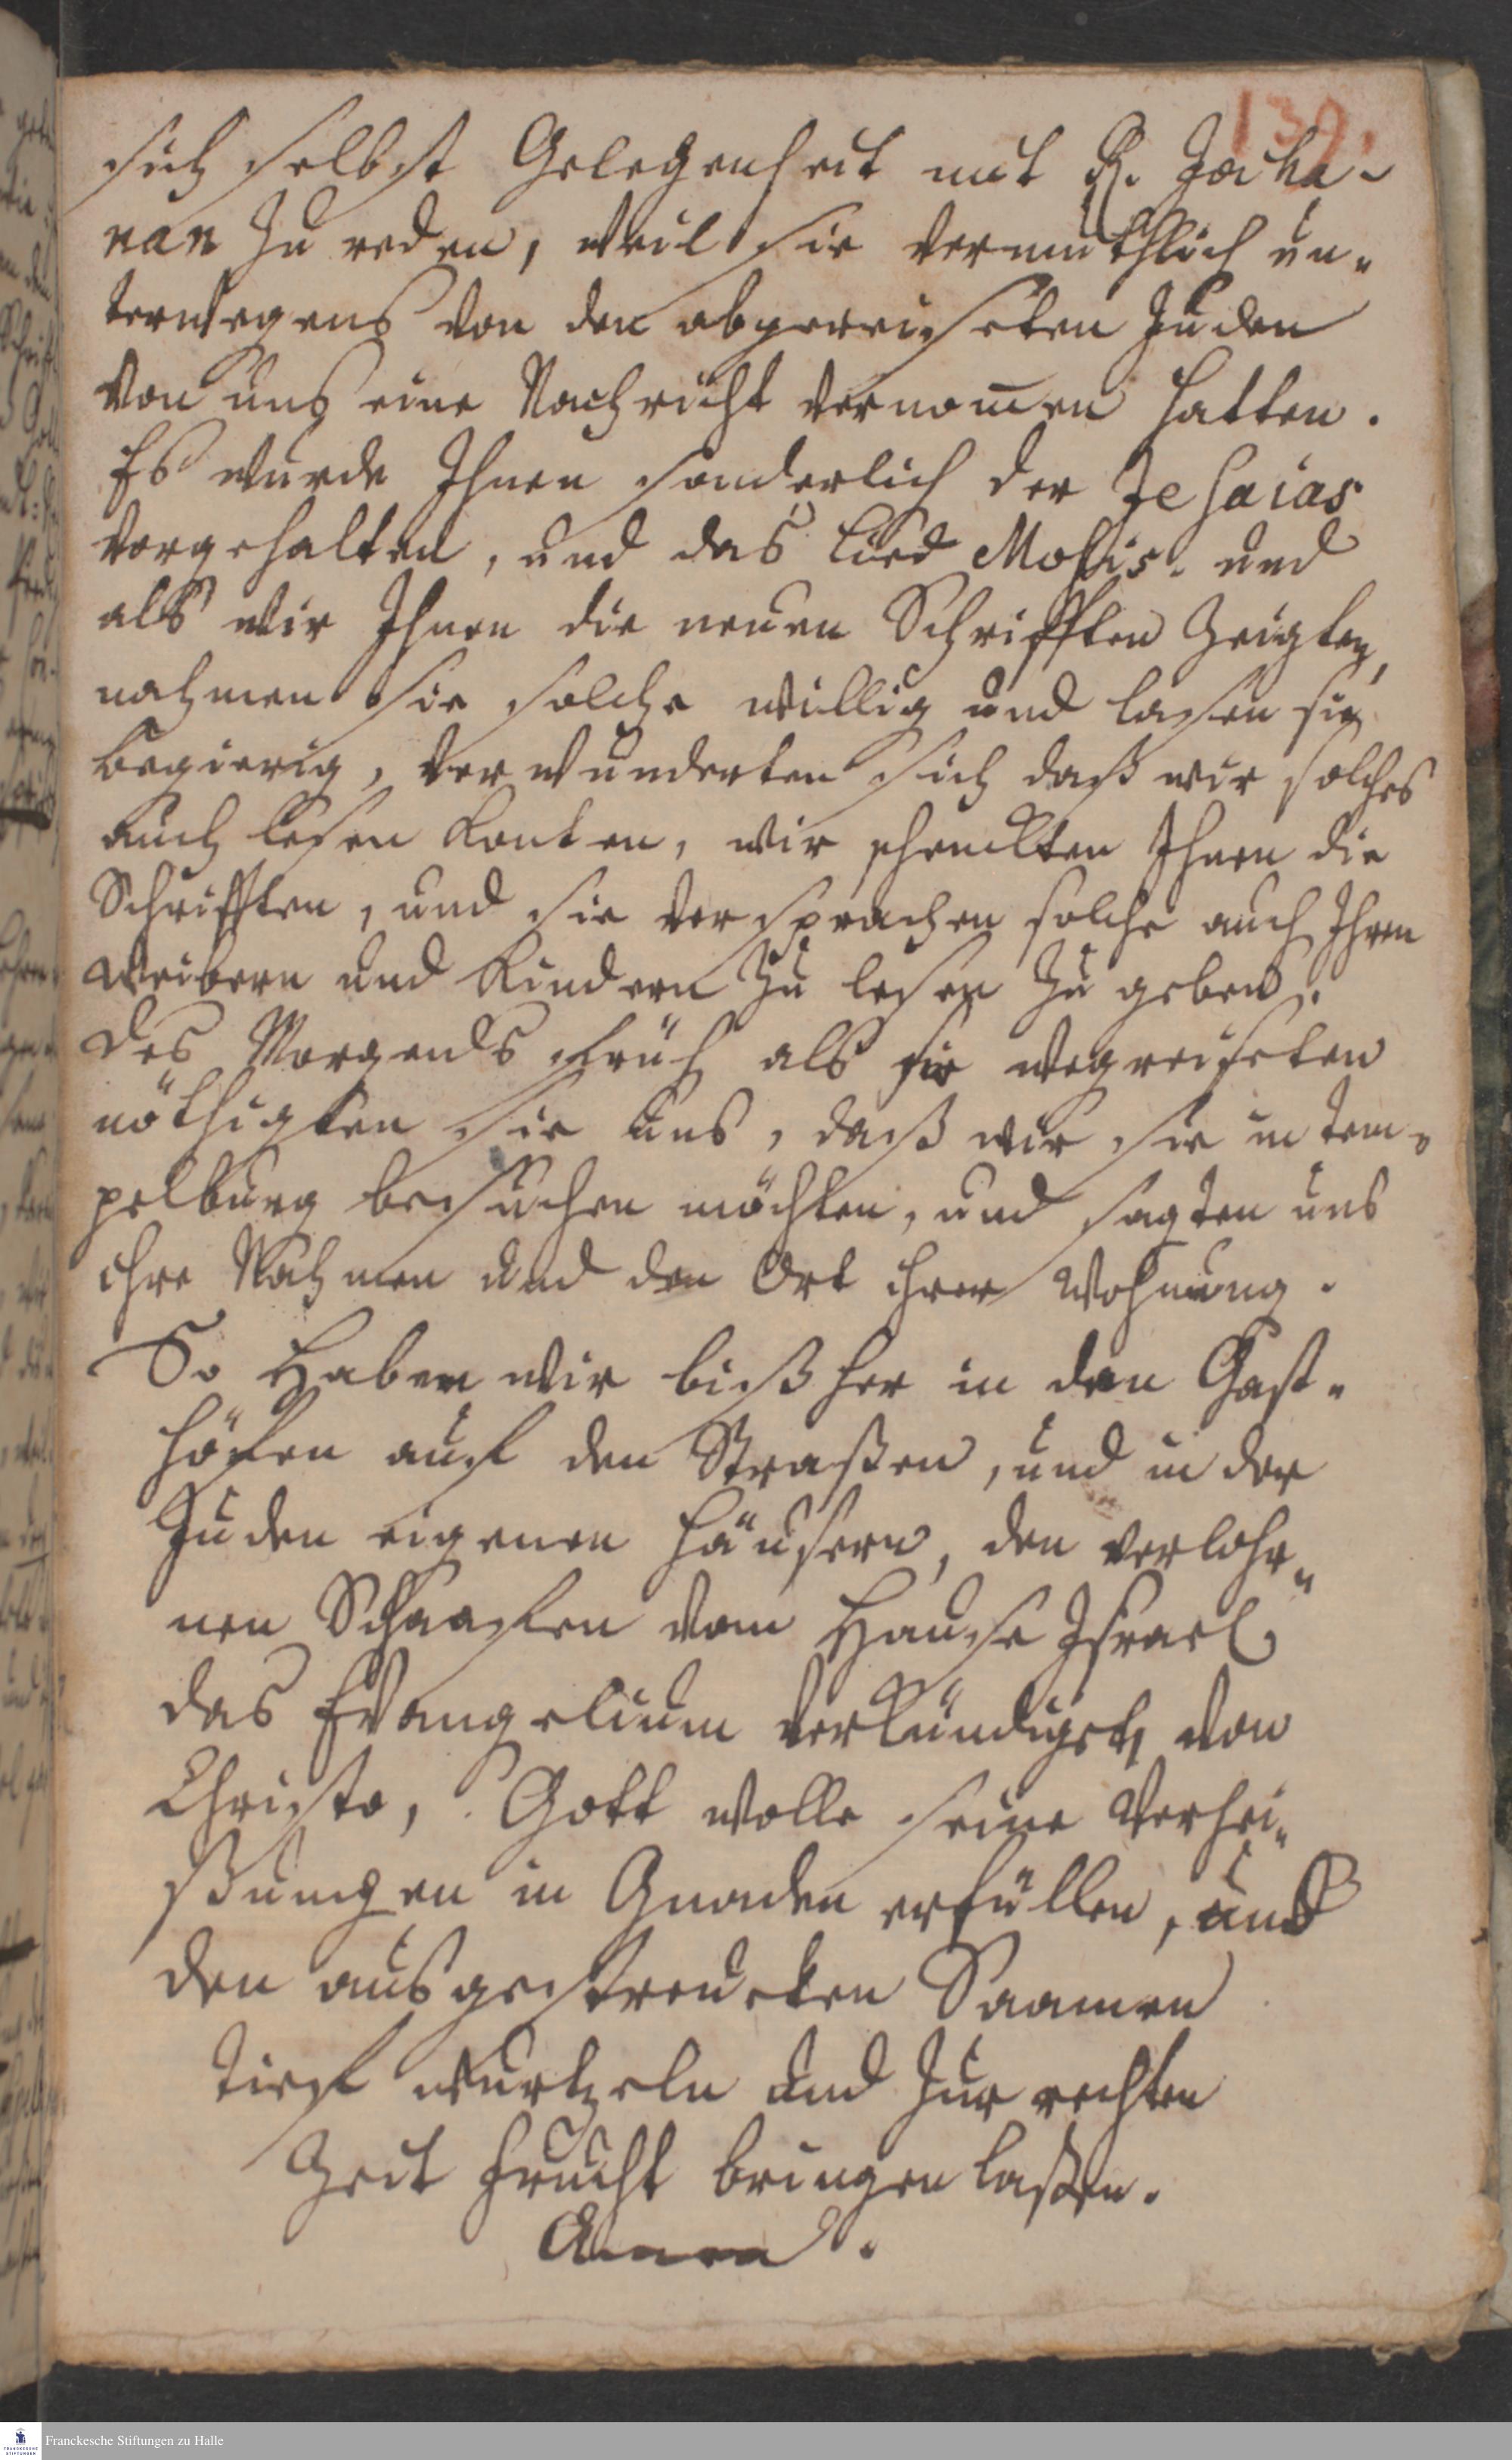 139.
sich selbst Gelegenheit mit R. Jocha-
nan zu reden, weil sie vermuthlich un-
terwegens von den abgereiseten Juden
von uns eine Nachricht vernom̄en hatten.
Es wurde Ihnen sonderlich der Jesaias
vorgehalten, und das Lied Mosis. und
als wir Ihnen die neuen Schrifften zeigten,
nahmen sie solche willig und lasen sie
begierig, verwunderten sich daß wir solches
auch lesen konten, wir schenckten Ihnen die
Schrifften, und sie versprachen solche auch Ihren
Weibern und Kindern zu lesen zu geben.
Des Morgends früh als sie wegreiseten
nöthigten sie uns, daß wir sie in Tem-
pelburg besuchen möchten, und sagten uns
ihre Nahmen und den Ort ihrer Wohnung.
So haben wir bißher in den Gast-
höfen auf den Straßen, und in der
Juden eigenen Häusern, den verlohr-
nen Schaafen vom Hause Israel
das Evangelium verkündiget von
Christo, Gott wolle seine Verhei-
ßungen in Gnaden erfüllen, und
den ausgestreueten Saamen
tief wurtzeln und zur rechten
Zeit Frucht bringen laßen.
Amen.
Franckesche Stiftungen zu Halle